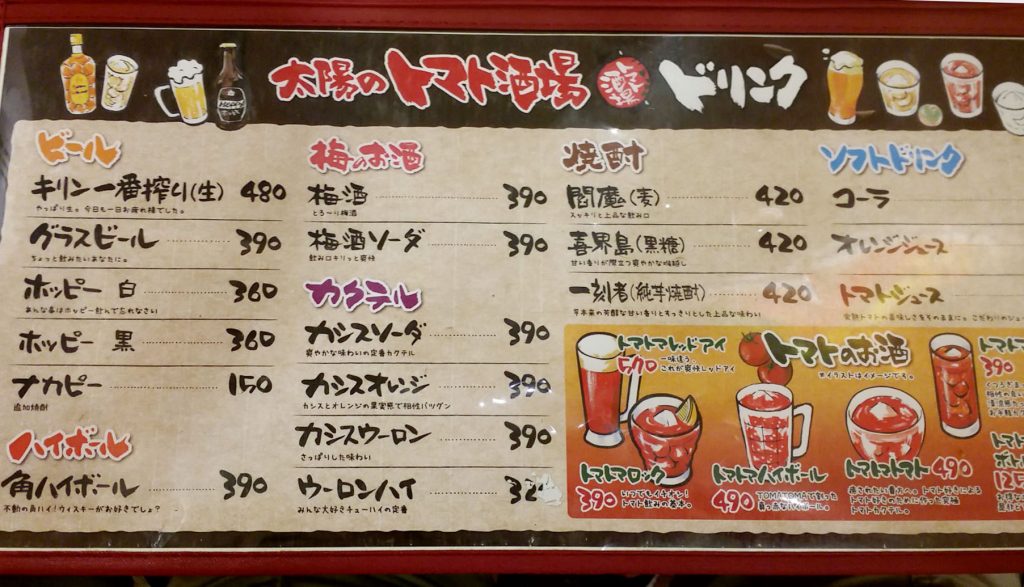 太陽のトマト酒場 ドリンク
ビール
キリン一番搾り(生) 480
やっぱり生。今日も一日お疲れ様でした。
グラスビール 390
ちょっと飲みたいあなたに。
ホッピー 白 360
あんな事はホッピー飲んで忘れなさい
ホッピー 黒 360
ナカピー 150
追加焼酎
ハイボール
角ハイボール 390
不動の角ハイ!ウィスキーがお好きでしょ?
梅のお酒
梅酒 390
とろ〜り梅酒
梅酒ソーダ 390
飲み口キリっと爽快
カクテル
カシスソーダ 390
爽やかな味わいの定番カクテル
カシスオレンジ 390
カシスとオレンジの果実感で相性バツグン
カシスウーロン 390
さっぱりした味わい
ウーロンハイ 32
みんな大好きチューハイの定番
焼酎
閻魔(麦) 420
スッキリと上品な飲み口
喜界島(黒糖) 420
甘い香りが際立つ爽やかな喉越し
一刻者(純芋焼酎) 420
芋本来の芳醇な甘い香りとすっきりとした上品な味わい
ソフトドリンク
コーラ
オレンジジュース
トマトジュース
完熟トマトの美味しさをそのままに。こだわりのジュー
トマトのお酒
※イラストはイメージです。
トマトマレッドアイ
570
一味違う、
これが爽快レッドアイ
トマトマロック
390
いつでもイチオシ!
トマト飲みの基本。
トマトマハイボール
490
TOMATOMAで割った
真っ赤なハイボール。
トマトマトマト 490
癒されたい貴方へ。トマト好きによる
トマト好きのために作った究極
トマトカクテル。
トマト
390